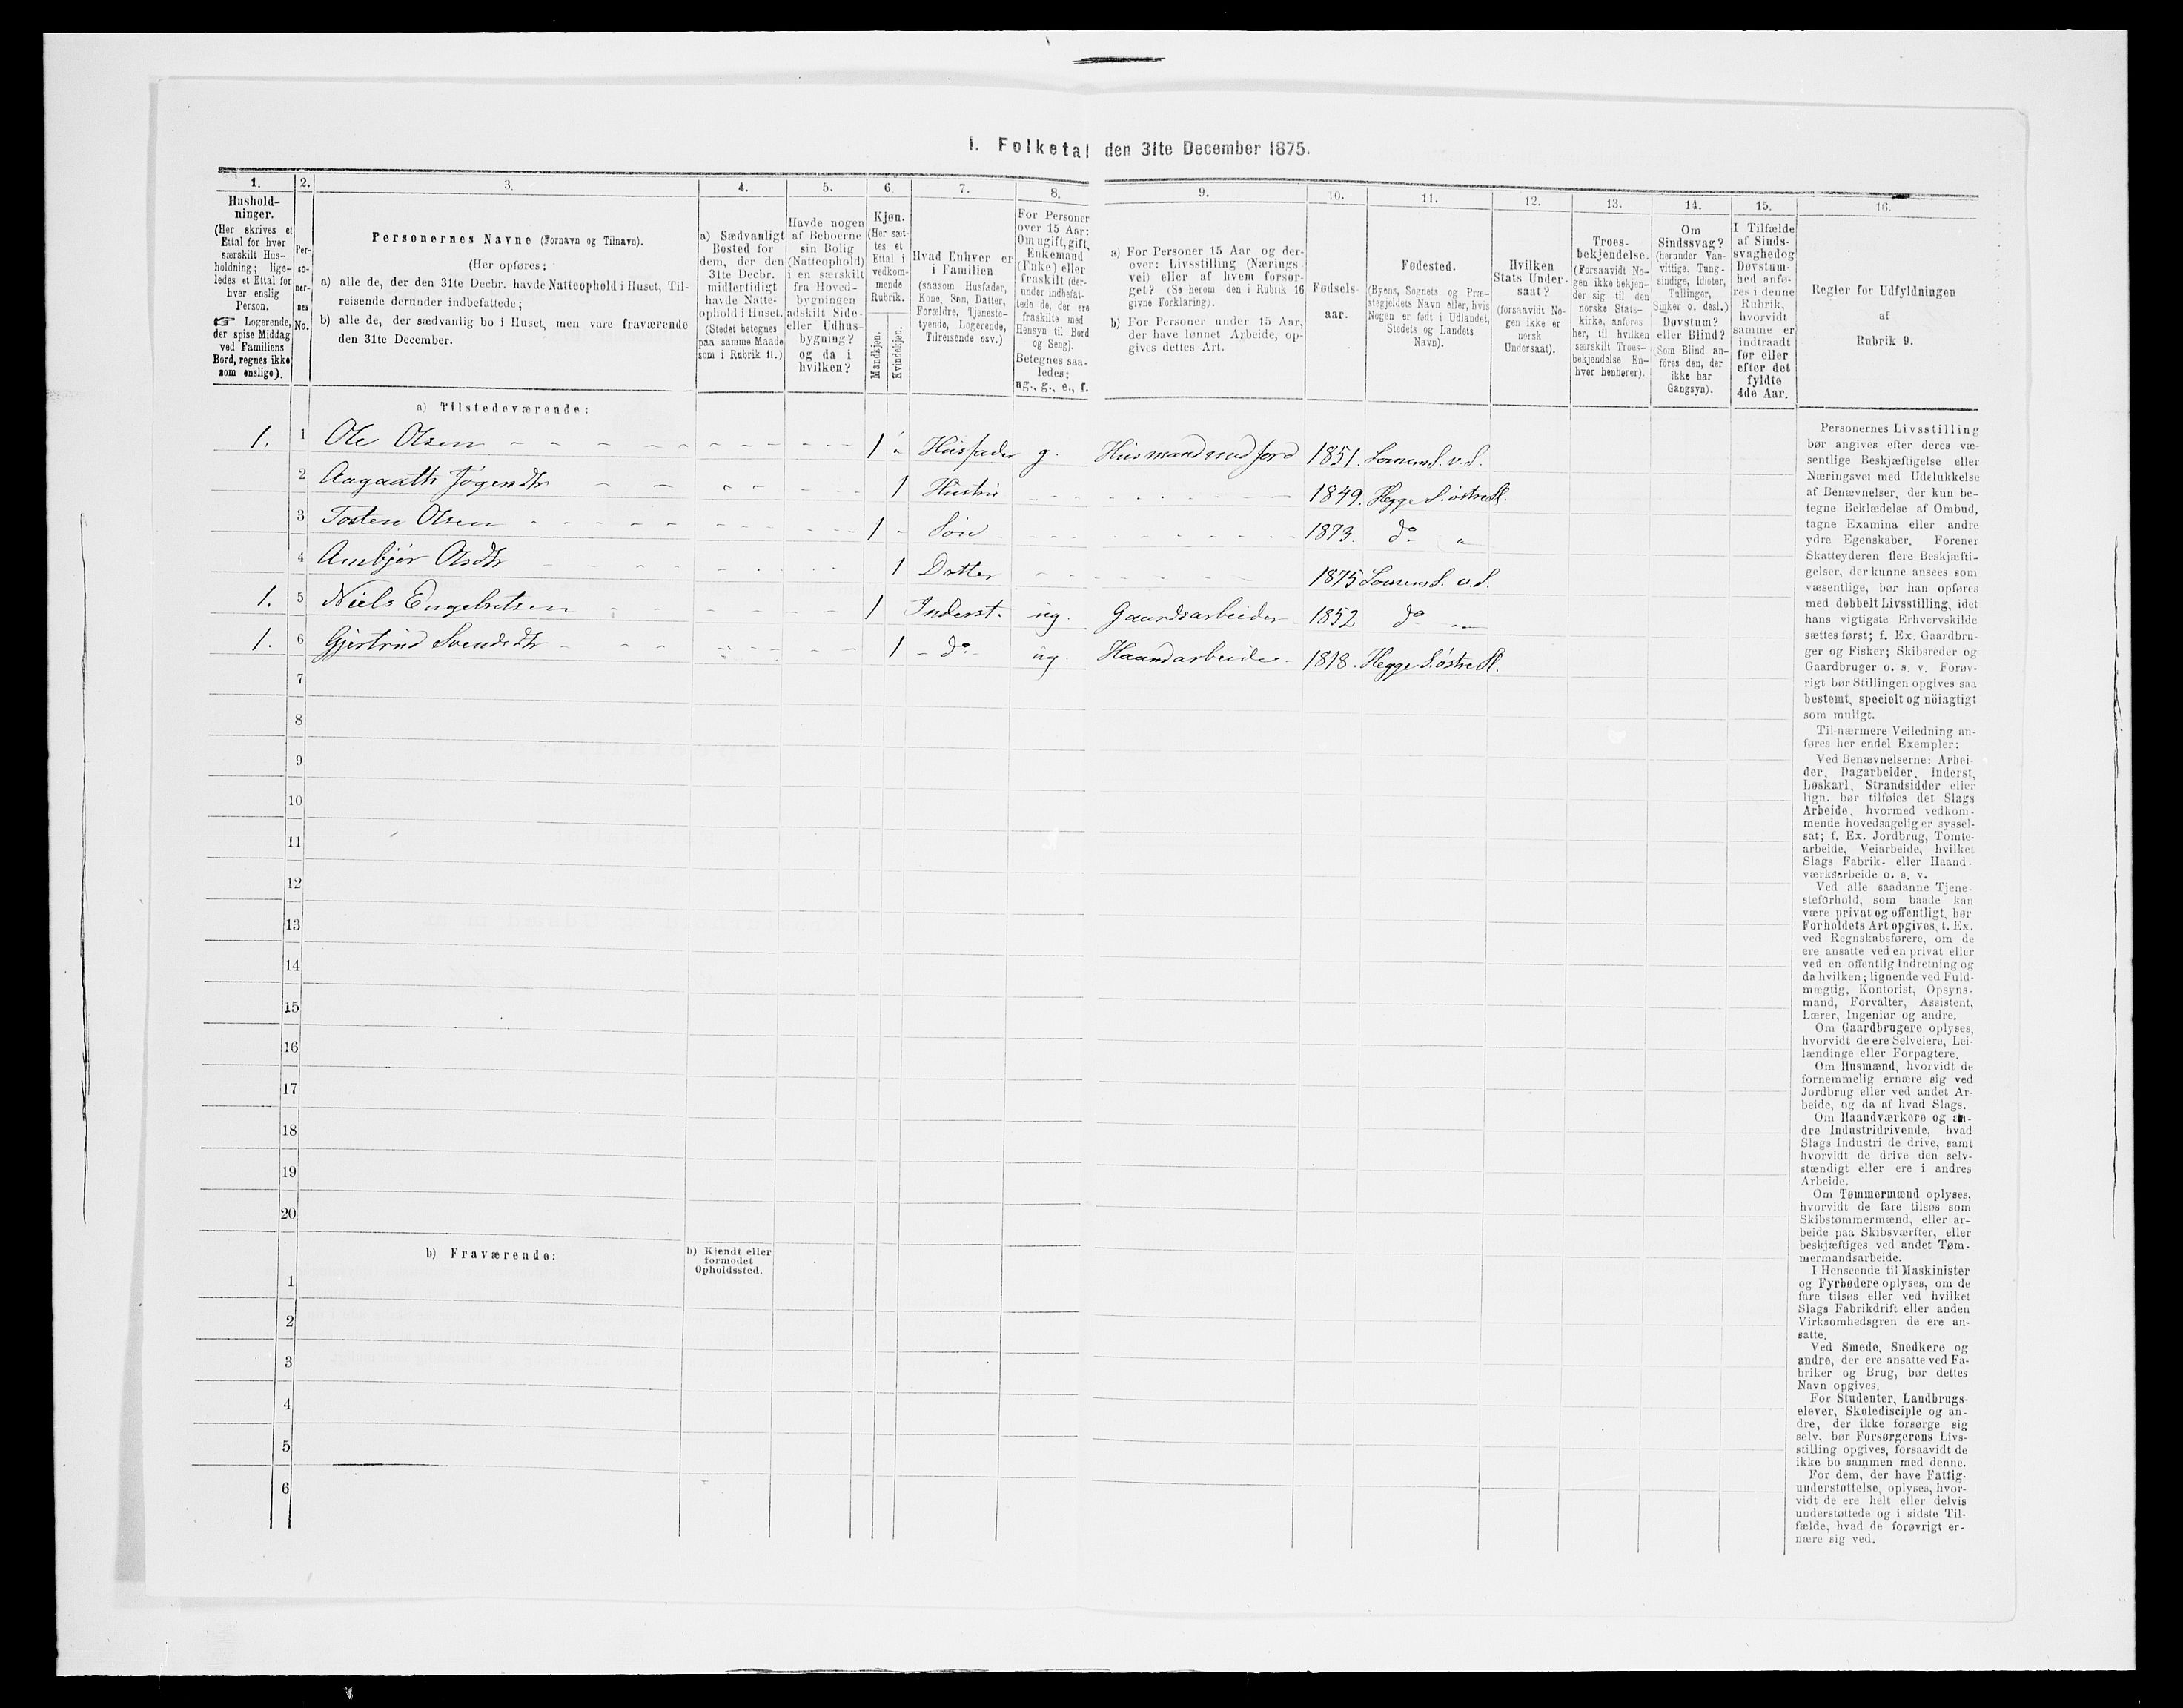 I. Folketal den 31te December 1875.
1. 2. 3. 4. 5. 6 7. 8. 9. 10. 11. 12. 13. 14. 15. 16.
Hushold-
ninger.
(Her skrives et
Ettal for hver
særskilt Hus-
holdning; lige-
ledes et Ettal for
hver enslig
Person.
☞ Logerende,
der spise Middag
ved Familiens
Bord, regnes ikke
som enslige).
Per-
so-
ner-
nes
No.
Personernes Navne (Fornavn og Tilnavn).
(Her opføres:
a) alle de, der den 31te Decbr. havde Natteophold i Huset, Til-
reisende derunder indbefattede;
b) alle de, der sædvanlig bo i Huset, men vare fraværende
den 31te December.
a) Sædvanligt
Bosted for
dem, der den
31te Decbr.
midlertidigt
havde Natte-
ophold i Huset.
(Stedet betegnes
paa samme Maade
som i Rubrik 11.)
Havde nogen
af Beboerne
sin Bolig
(Natteophold)
i en særskilt
fra Hoved-
bygningen
adskilt Side-
eller Udhus-
bygning?
og da i
hvilken?
Kjøn.
(Her sæt-
tes et
Ettal i
vedkom-
mende
Rubrik.
Mandkjøn.
Kvindekjøn.
Hvad Enhver er
i Familien
(saasom Husfader,
Kone, Søn, Datter,
Forældre, Tjeneste-
tyende, Logerende,
Tilreisende osv.)
For Personer
over 15 Aar:
Om ugift, gift,
Enkemand
(Enke) eller
fraskilt (der-
under indbefat-
tede de, der ere
fraskilte med
Hensyn til Bord
og Seng).
Betegnes saa-
ledes:
ug., g., e., f.
a) For Personer 15 Aar og der-
over: Livsstilling (Nærings
vei) eller af hvem forsør-
get? (Se herom den i Rubrik 16
givne Forklaring).
b) For Personer under 15 Aar,
der have lønnet Arbeide, op-
gives dettes Art.
Fødsels-
aar.
Fødested.
(Byens, Sognets og Præ-
stegjeldets Navn eller, hvis
Nogen er født i Udlandet,
Stedets og Landets
Navn).
Hvilken
Stats Under-
saat?
(forsaavidt No-
gen ikke er
norsk
Undersaat).
Troes-
bekjendelse.
(Forsaavidt No-
gen ikke bekjen-
der sig til den
norske Stats-
kirke, anføres
her, til hvilken
særskilt Troes-
bekjendelse En-
hver henhører).
Om
Sindssvag?
(herunder Van-
vittige, Tung-
sindige, Idioter,
Tullinger,
Sinker o. desl.)
Døvstum?
eller Blind?
(Som Blind an-
føres den, der
ikke har
Gangsyn).
I Tilfælde
af Sinds-
svaghed og
Døvstum-
hed anfø-
res i denne
Rubrik,
hvorvidt
samme er
indtraadt
før eller
efter det
fyldte
4de Aar.
Regler for Udfyldningen
af
Rubrik 9.
a) Tilstedeværende:
1. 1 Ole Olsen 1 Husfader g. Husmand med Jord 1851.
2 Aagaath 1 Hustru 1849. Hegge S. østre Sl.
3 Tosten Olsen 1 Søn 1873. do "
4 Olsdtr 1 Datter 1875
1. 5 Niels Engebretsen 1 Inderst. ug. Gaardsarbeider 1852 do
1. 6 Gjertrud Svendsdtr 1 do ug. Haandarbeide 1818. Hegge S. østre Sl.
7
8
9
10
11
12
13
14
15
16
17
18
19
20
b) Fraværende:
b) Kjendt eller
formodet
Opholdssted.
1
2
3
4
5
6
Personernes Livsstilling
bør angives efter deres væ-
sentlige Beskjæftigelse eller
Næringsvei med Udelukkelse
af Benævnelser, der kun be-
tegne Beklædelse af Ombud,
tagne Examina eller andre
ydre Egenskaber. Forener
Skatteyderen flere Beskjæfti-
gelser, der kunne ansees som
væsentlige, bør han opføres
med dobbelt Livsstilling, idet
hans vigtigste Erhvervskilde
sættes først; f. Ex. Gaardbru-
ger og Fisker; Skibsreder og
Gaardbruger o. s. v. Forøv-
rigt bør Stillingen opgives saa
bestemt, specielt og nöiagtigt
som muligt.
Til nærmere Veiledning an-
føres her endel Exempler:
Ved Benævnelserne: Arbei-
der, Dagarbeider, Inderst,
Løskarl, Strandsidder eller
lign. bør tilføies det Slags
Arbeide, hvormed vedkom-
mende hovedsagelig er syssel-
sat; f. Ex. Jordbrug, Tomte-
arbeide, Veiarbeide, hvilket
Slags Fabrik- eller Haand-
værksarbeide o. s. v.
Ved alle saadanne Tjene-
steforhold, som baade kan
være privat og offentligt, bør
Forholdets Art opgives, t. Ex.
ved Regnskabsførere, om de
ere ansatte ved en privat eller
ved en offentlig Indretning og
da hvilken; lignende ved Fuld-
mægtig, Kontorist, Opsyns-
mand, Forvalter, Assistent,
Lærer, Ingeniør og andre.
Om Gaardbrugere oplyses,
hvorvidt de ere Selveiere, Lei-
lændinge eller Forpagtere.
Om Husmænd, hvorvidt de
fornemmelig ernære sig ved
Jordbrug eller ved andet Ar-
beide, og da af hvad Slags.
Om Haandværkere og an-
dre Industridrivende, hvad
Slags Industri de drive, samt
hvorvidt de drive den selv-
stændigt eller ere i andres
Arbeide.
Om Tømmermænd oplyses,
hvorvidt de fare tilsøs som
Skibstømmermænd, eller ar-
beide paa Skibsværfter, eller
beskjæftiges ved andet Tøm-
mermandsarbeide.
I Henseende til Maskinister
og Fyrbødere oplyses, om de
fare tilsøs eller ved hvilket
Slags Fabrikdrift eller anden
Virksomhedsgren de ere an-
satte.
Ved Smede, Snedkere og
andre, der ere ansatte ved Fa-
briker og Brug, bør dettes
Navn opgives.
For Studenter, Landbrugs-
elever, Skoledisciple og an-
dre, der ikke forsørge sig
selv, bør Forsørgerens Livs-
stilling opgives, forsaavidt de
ikke bo sammen med denne.
For dem, der have Fattig-
understøttelse, oplyses, hvor-
vidt de ere helt eller delvis
understøttede og i sidste Til-
fælde, hvad de forøvrigt er-
nære sig ved.